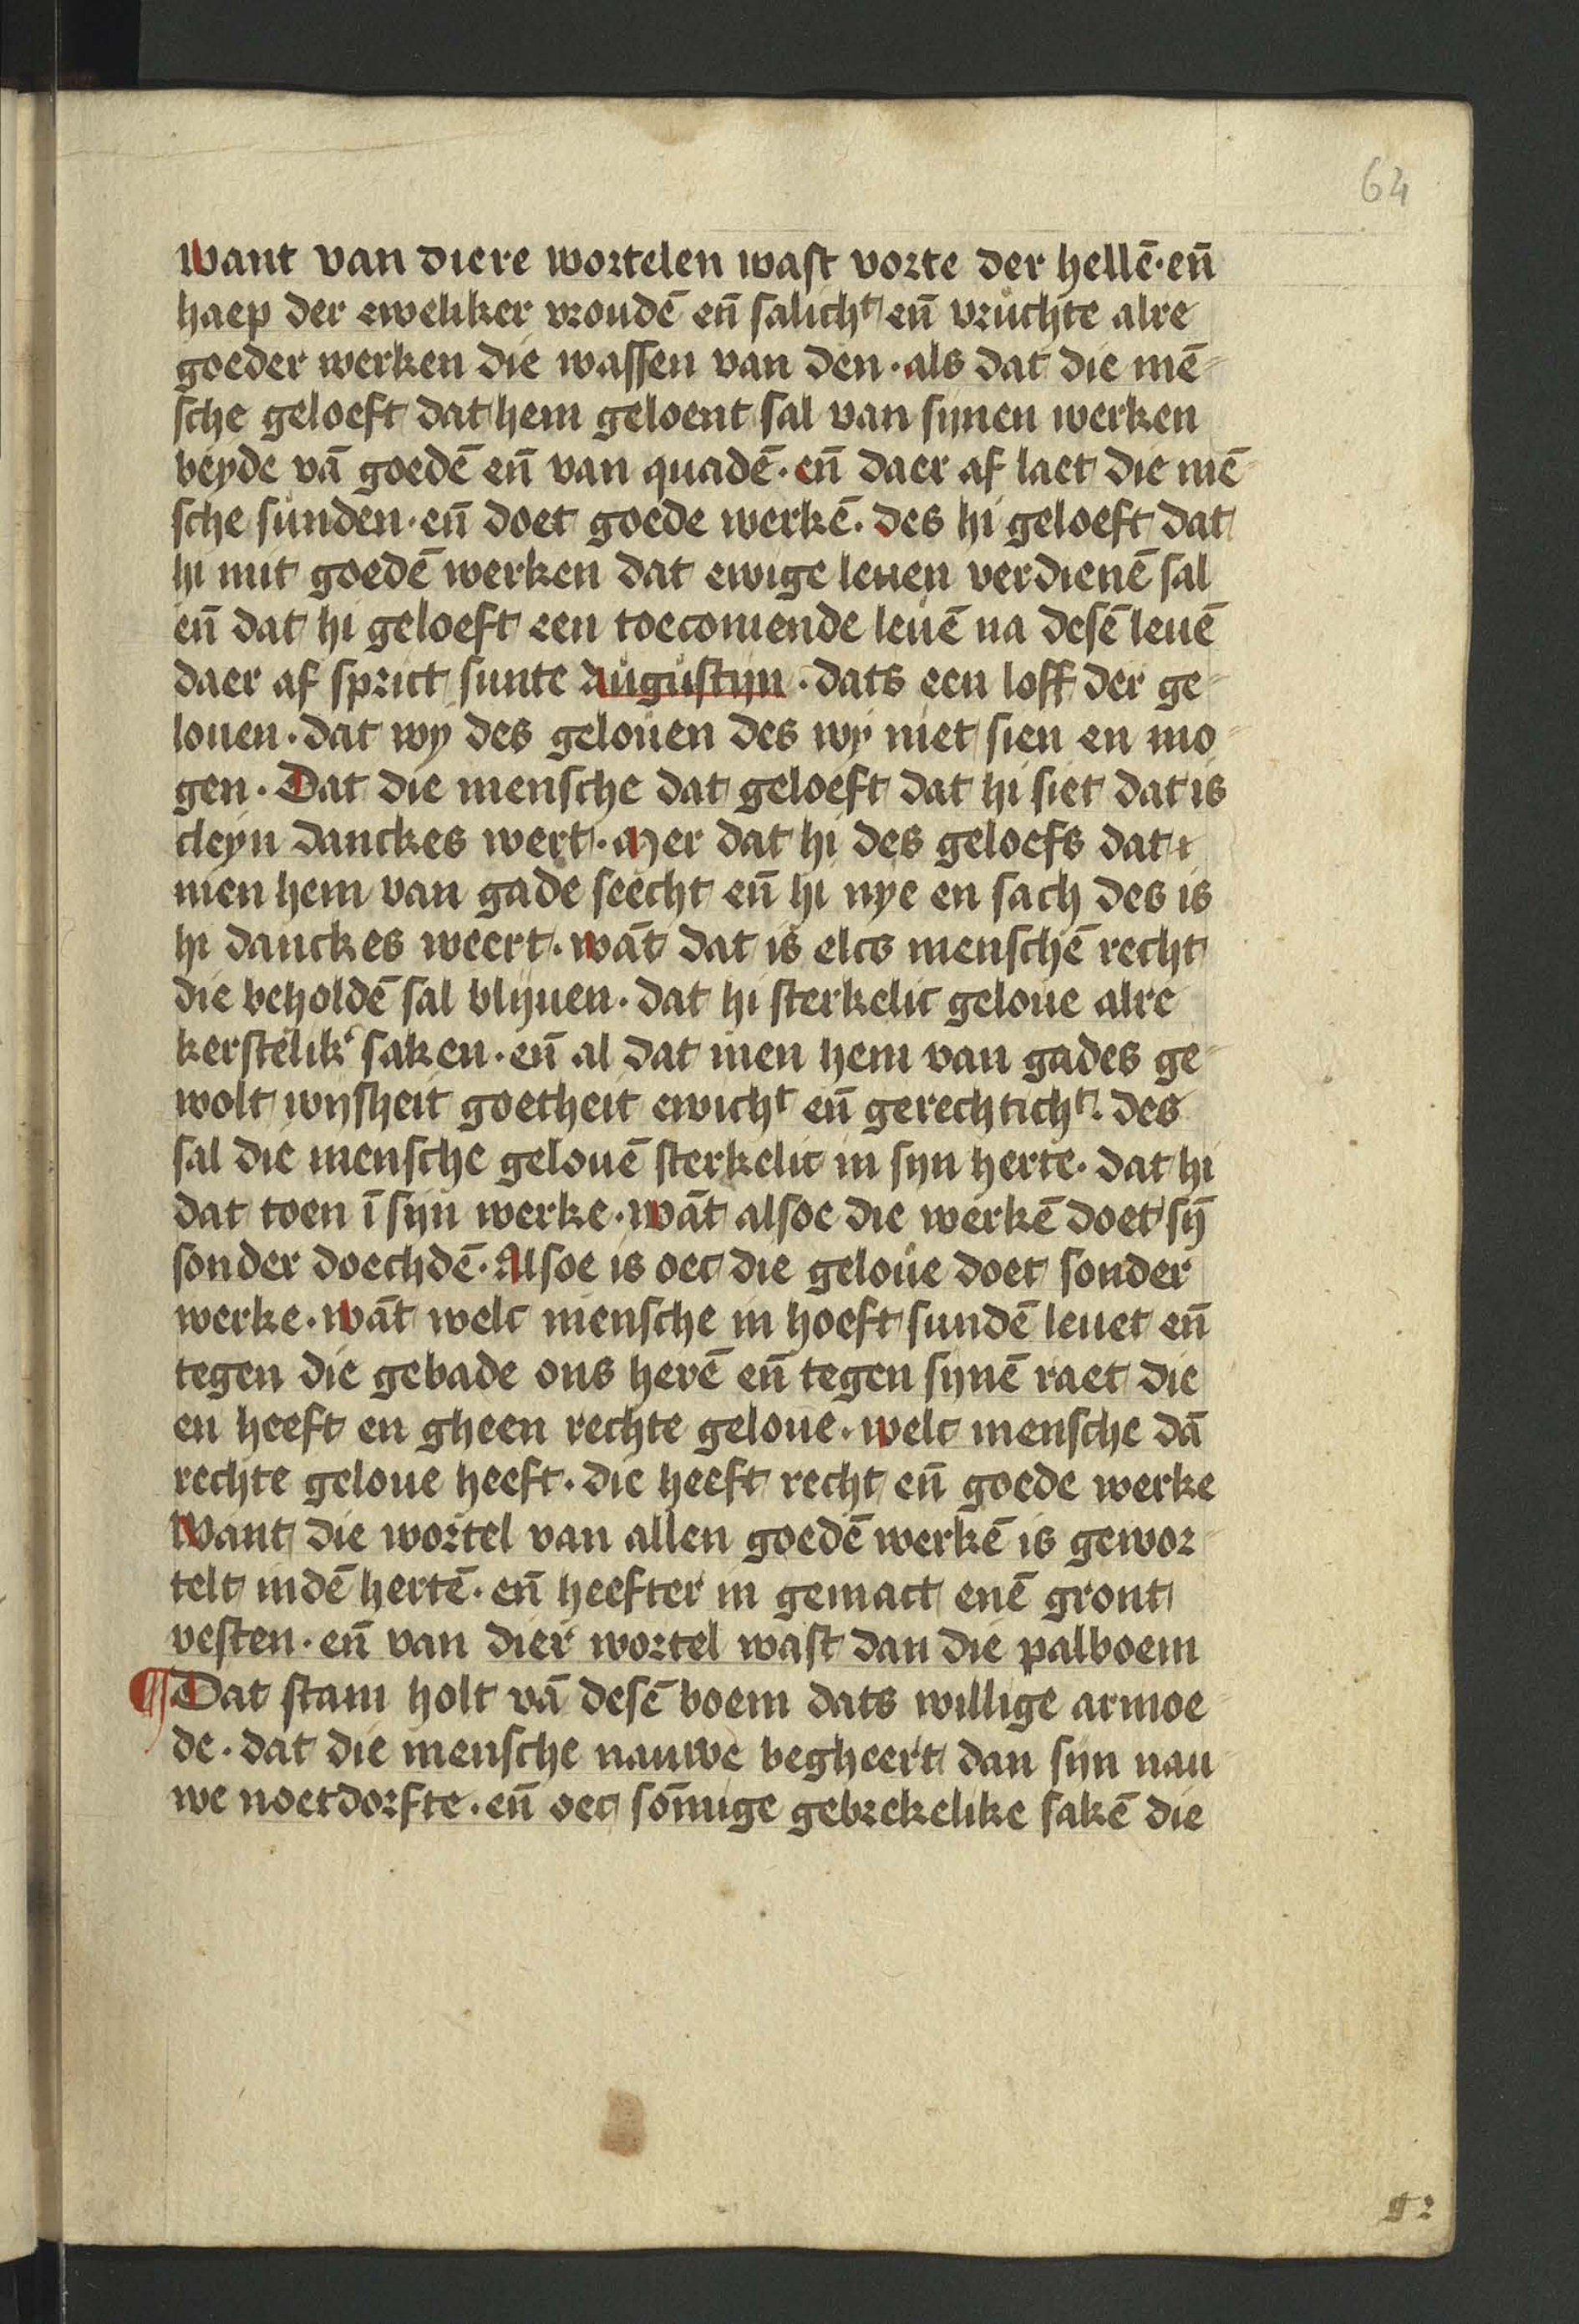 64
Want van diere wortelen wast vorte der hellē · en̄
haep der eweliker vroudē en̄ salichᵗ en̄ vruchte alre
goeder werken die wassen van den · als dat die mē-
sche geloeft dat hem geloent sal van sijnen werken
beyde vā goedē en̄ van quadē · en̄ daer af laet die mē-
sche sunden · en̄ doet goede werkē · des hi geloeft dat
hi mit goedē werken dat ewige leuen verdienē sal
en̄ dat hi geloeft een toecomende leuē na desē leuē
daer af sprict sunte Augustijn · dats een loff der ge-
louen · dat wy des gelouen des wy niet sien en mo-
gen · Dat die mensche dat geloeft dat hi siet dat is
cleyn danckes wert · Mer dat hi des geloefs dat
men hem van gade seecht en̄ hi nye en sach des is
hi danckes weert · wāt dat is elcs menschē recht
die beholdē sal blijuen · dat hi sterkelic geloue alre
kerstelikʳ saken · en̄ al dat men hem van gades ge-
wolt wijsheit goetheit ewichᵗ en̄ gerechtichᵗ · des
sal die mensche gelouē sterkelic in sijn herte · dat hi
dat toen ī sijn werke · wāt alsoe die werkē doet sȳ
sonder doechdē · Alsoe is oec die geloue doet sonder
werke · wāt welc mensche in hoeft sundē leuet en̄
tegen die gebade ons herē en̄ tegen sijnē raet die
en heeft en gheen rechte geloue · welc mensche dā
rechte geloue heeft · die heeft recht en̄ goede werke
Want die wortel van allen goedē werkē is gewor-
telt indē hertē · en̄ heefter in gemact enē gront
vesten · en̄ van dierʳ wortel wast dan die palboem
¶ Dat stam holt vā desē boem dats willige armoe-
de · dat die mensche nauwe begheert dan sijn nau-
we noetdorfte · en̄ oec som̄ige gebrekelike sakē die
g2